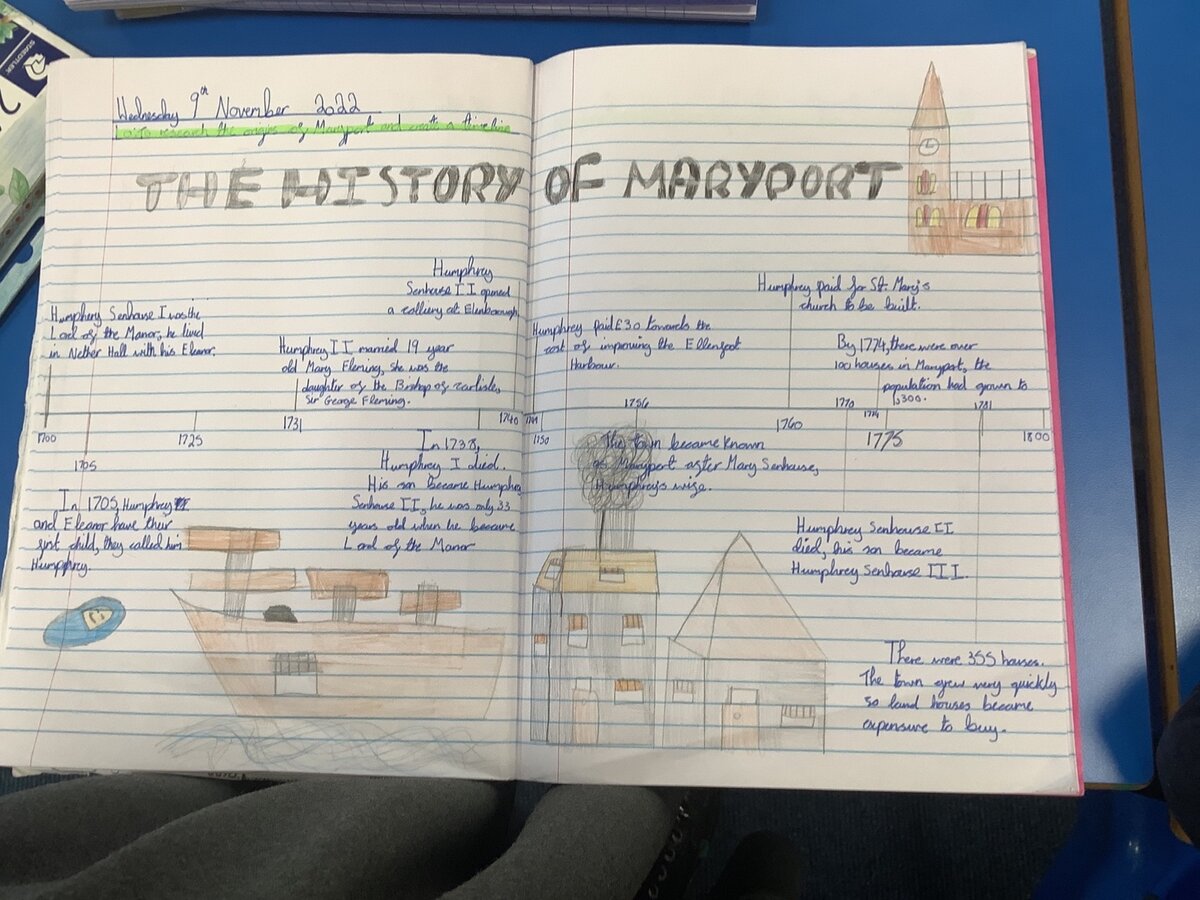 Wednesday 9th November 2022
Lo: To research the origins of Maryport and create a timeline
THE HISTORY OF MARYPORT
Humphrey Senhouse I was the
Lord of the Manor, he lived
in Nether Hall with his Eleanor.
Humphrey II married 19 year
old Mary Fleming, she was the
daughter of the Bishop of Carlisle,
Sir George Fleming.
Humphrey
Senhouse II opened
a colliery at Ellenborough
Humphrey paid £30 towards the
cost of improving the Ellenfoot
Harbour.
Humphrey paid for St. Mary's
church to be built.
By 1774, there were over
100 houses in Maryport, the
population had grown to
1,300.
1700
1705
1725
1731
1740
1750
1756
1760
1770
1774
1775
1781
1800
In 1705, Humphrey
and Eleanor have their
first child, they called him
Humphrey.
In 1738,
Humphrey I died.
His son became Humphrey
Senhouse II, he was only 33
years old when he became
Lord of the Manor
The town became known
as Maryport after Mary Senhouse,
Humphrey's wife.
Humphrey Senhouse II
died, his son became
Humphrey Senhouse III.
There were 355 houses.
The town grew very quickly
so land houses became
expensive to buy.
STAEDTLER